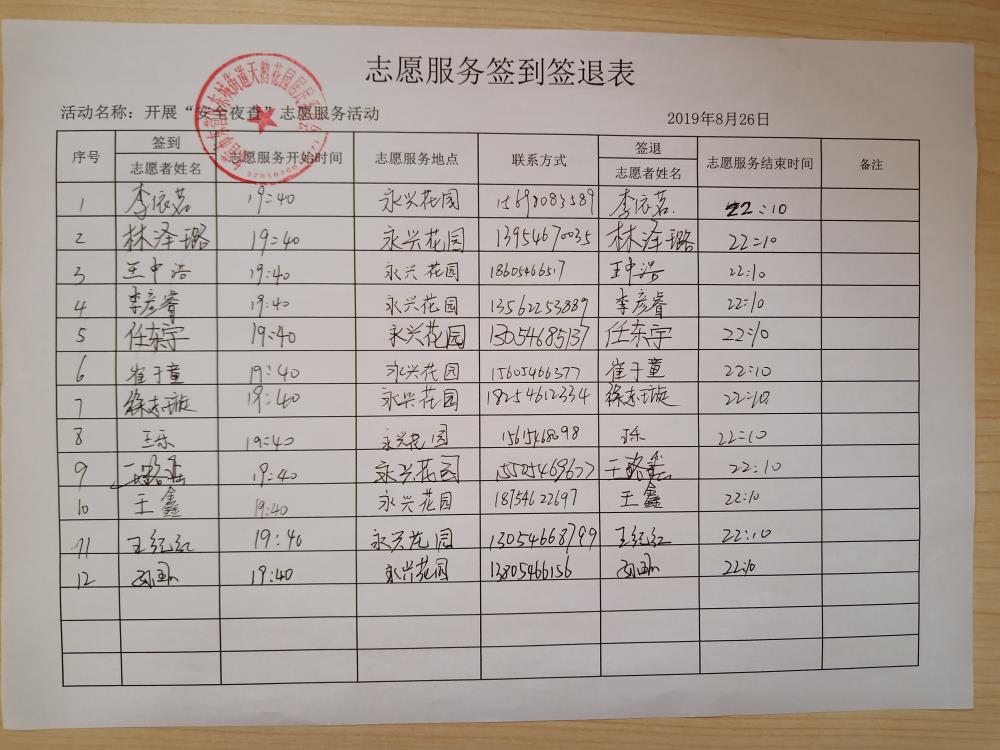 志愿服务签到签退表
活动名称：开展“安全夜查”志愿服务活动
2019年8月26日
序号 签到 志愿服务开始时间 志愿服务地点 联系方式 签退 志愿服务结束时间 备注
志愿者姓名 志愿者姓名
1 李依茗 19:40 永兴花园 李依茗 22:10
2 林泽璐 19:40 永兴花园 13954670035 林泽璐 22:10
3 王中浩 19:40 永兴花园 18605466517 王中浩 22:10
4 李彦睿 19:40 永兴花园 13562253889 李彦睿 22:10
5 任东宇 19:40 永兴花园 13054685137 任东宇 22:10
6 崔于童 19:40 永兴花园 15605466377 崔于童 22:10
7 徐志璇 19:40 永兴花园 18254612334 徐志璇 22:10
8 王乐 19:40 永兴花园 22:10
9 19:40 永兴花园 15525469677 22:10
10 王鑫 19:40 永兴花园 18754622697 王鑫 22:10
11 王纪红 19:40 永兴花园 13054668799 王纪红 22:10
12 19:40 永兴花园 13805466156 22:10